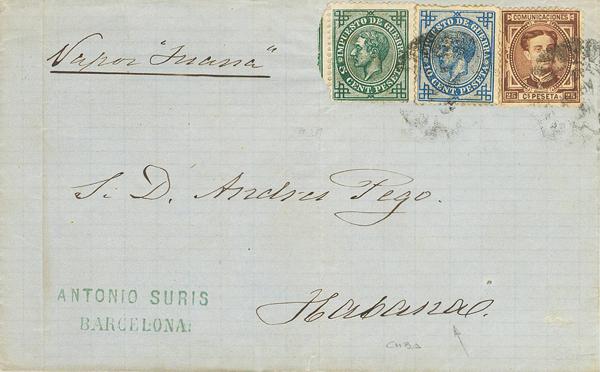 Vapor "Juana"
5 IMPUESTO DE GUERRA 5
CENT. PESETA
IMPUESTO DE GUERRA
10 CENT. PESETA
COMUNICACIONES
25 Cs PESETA 25
S. D. Andres Pego.
Habana.
ANTONIO SURIS
BARCELONA.
CUBA